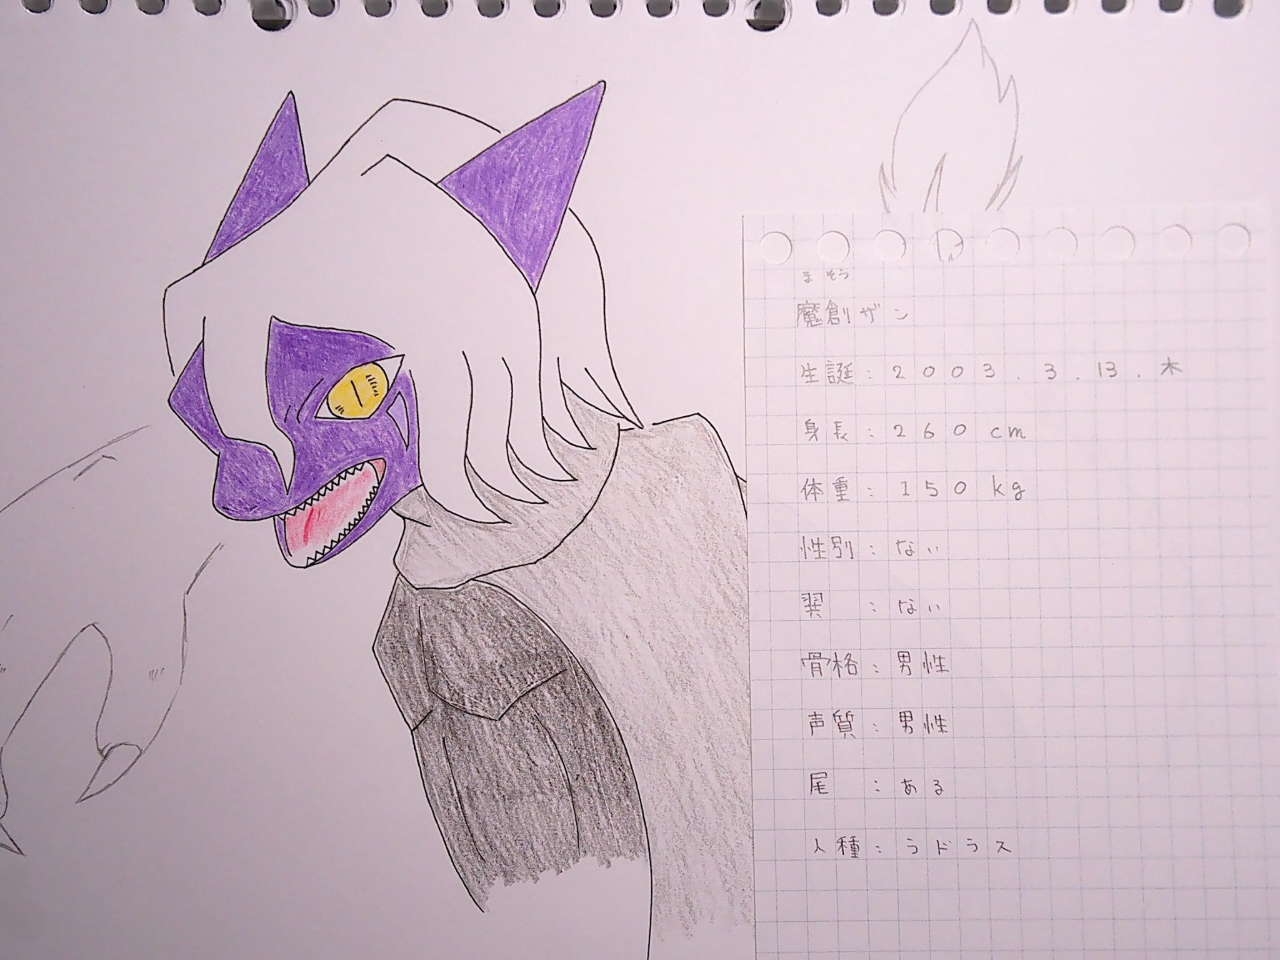 まそう
魔創ザン
生誕：2003.3.13.木
身長：260cm
体重：150kg
性別：ない
翼：ない
骨格：男性
声質：男性
尾：ある
人種：ラドラス